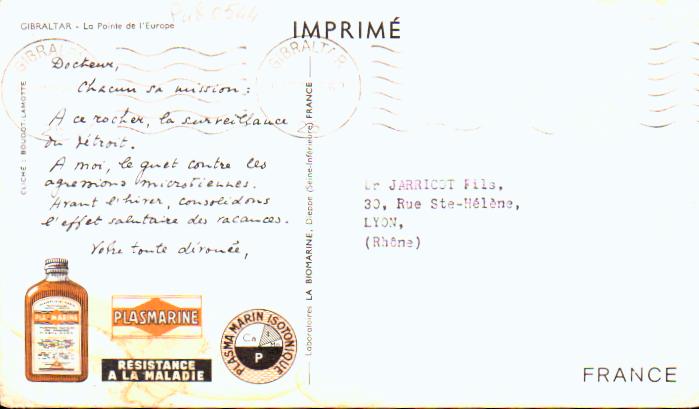 GIBRALTAR - La Pointe de l'Europe
IMPRIMÉ
GIBRALTAR
GIBRALTAR
CLICHÉ : BOUDOT-LAMOTTE
Docteur,
Chacun sa mission :
A ce rocher, la surveillance
du Détroit.
A moi, le guet contre les
agressions microbiennes.
Avant l'hiver, consolidons
l'effet salutaire des vacances.
Votre toute dévouée,
PLASMARINE
PLASMARINE
RESISTANCE
A LA MALADIE
PLASMA MARIN ISOTONIQUE
Ca
P
Laboratoires LA BIOMARINE, Dieppe (Seine-Inférieure) FRANCE
Dr JARRICOT Fils,
30, Rue Ste-Hélène,
LYON,
(Rhône)
FRANCE